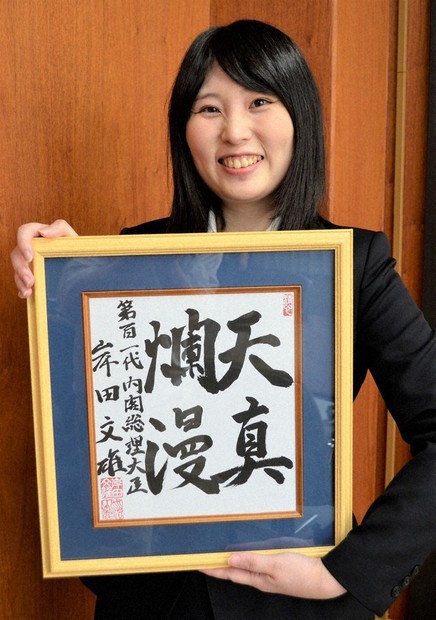 天真
爛漫
第百一代内閣総理大臣
岸田文雄